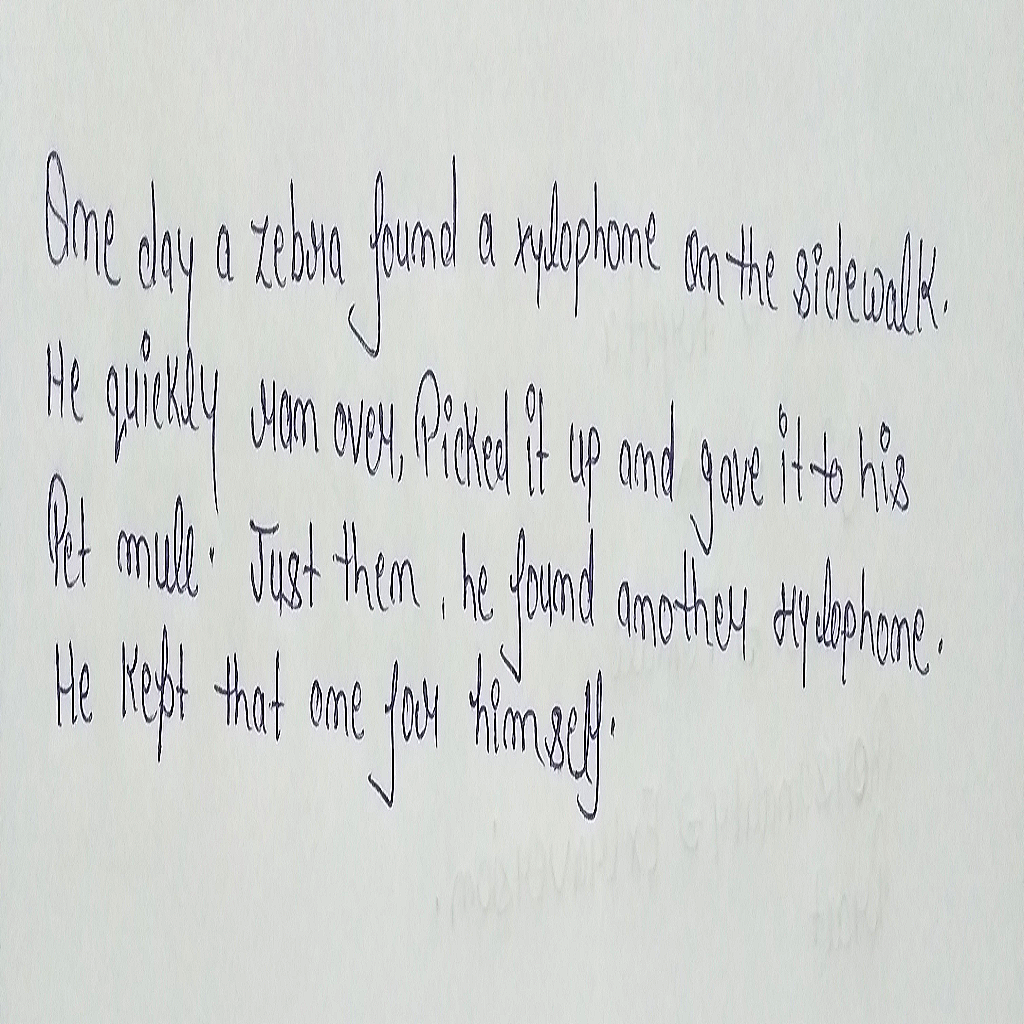 One day a zebra found a xylophone on the sidewalk.
He quickly ran over, Picked it up and gave it to his
Pet mule. Just then, he found another xylophone.
He kept that one for himself.